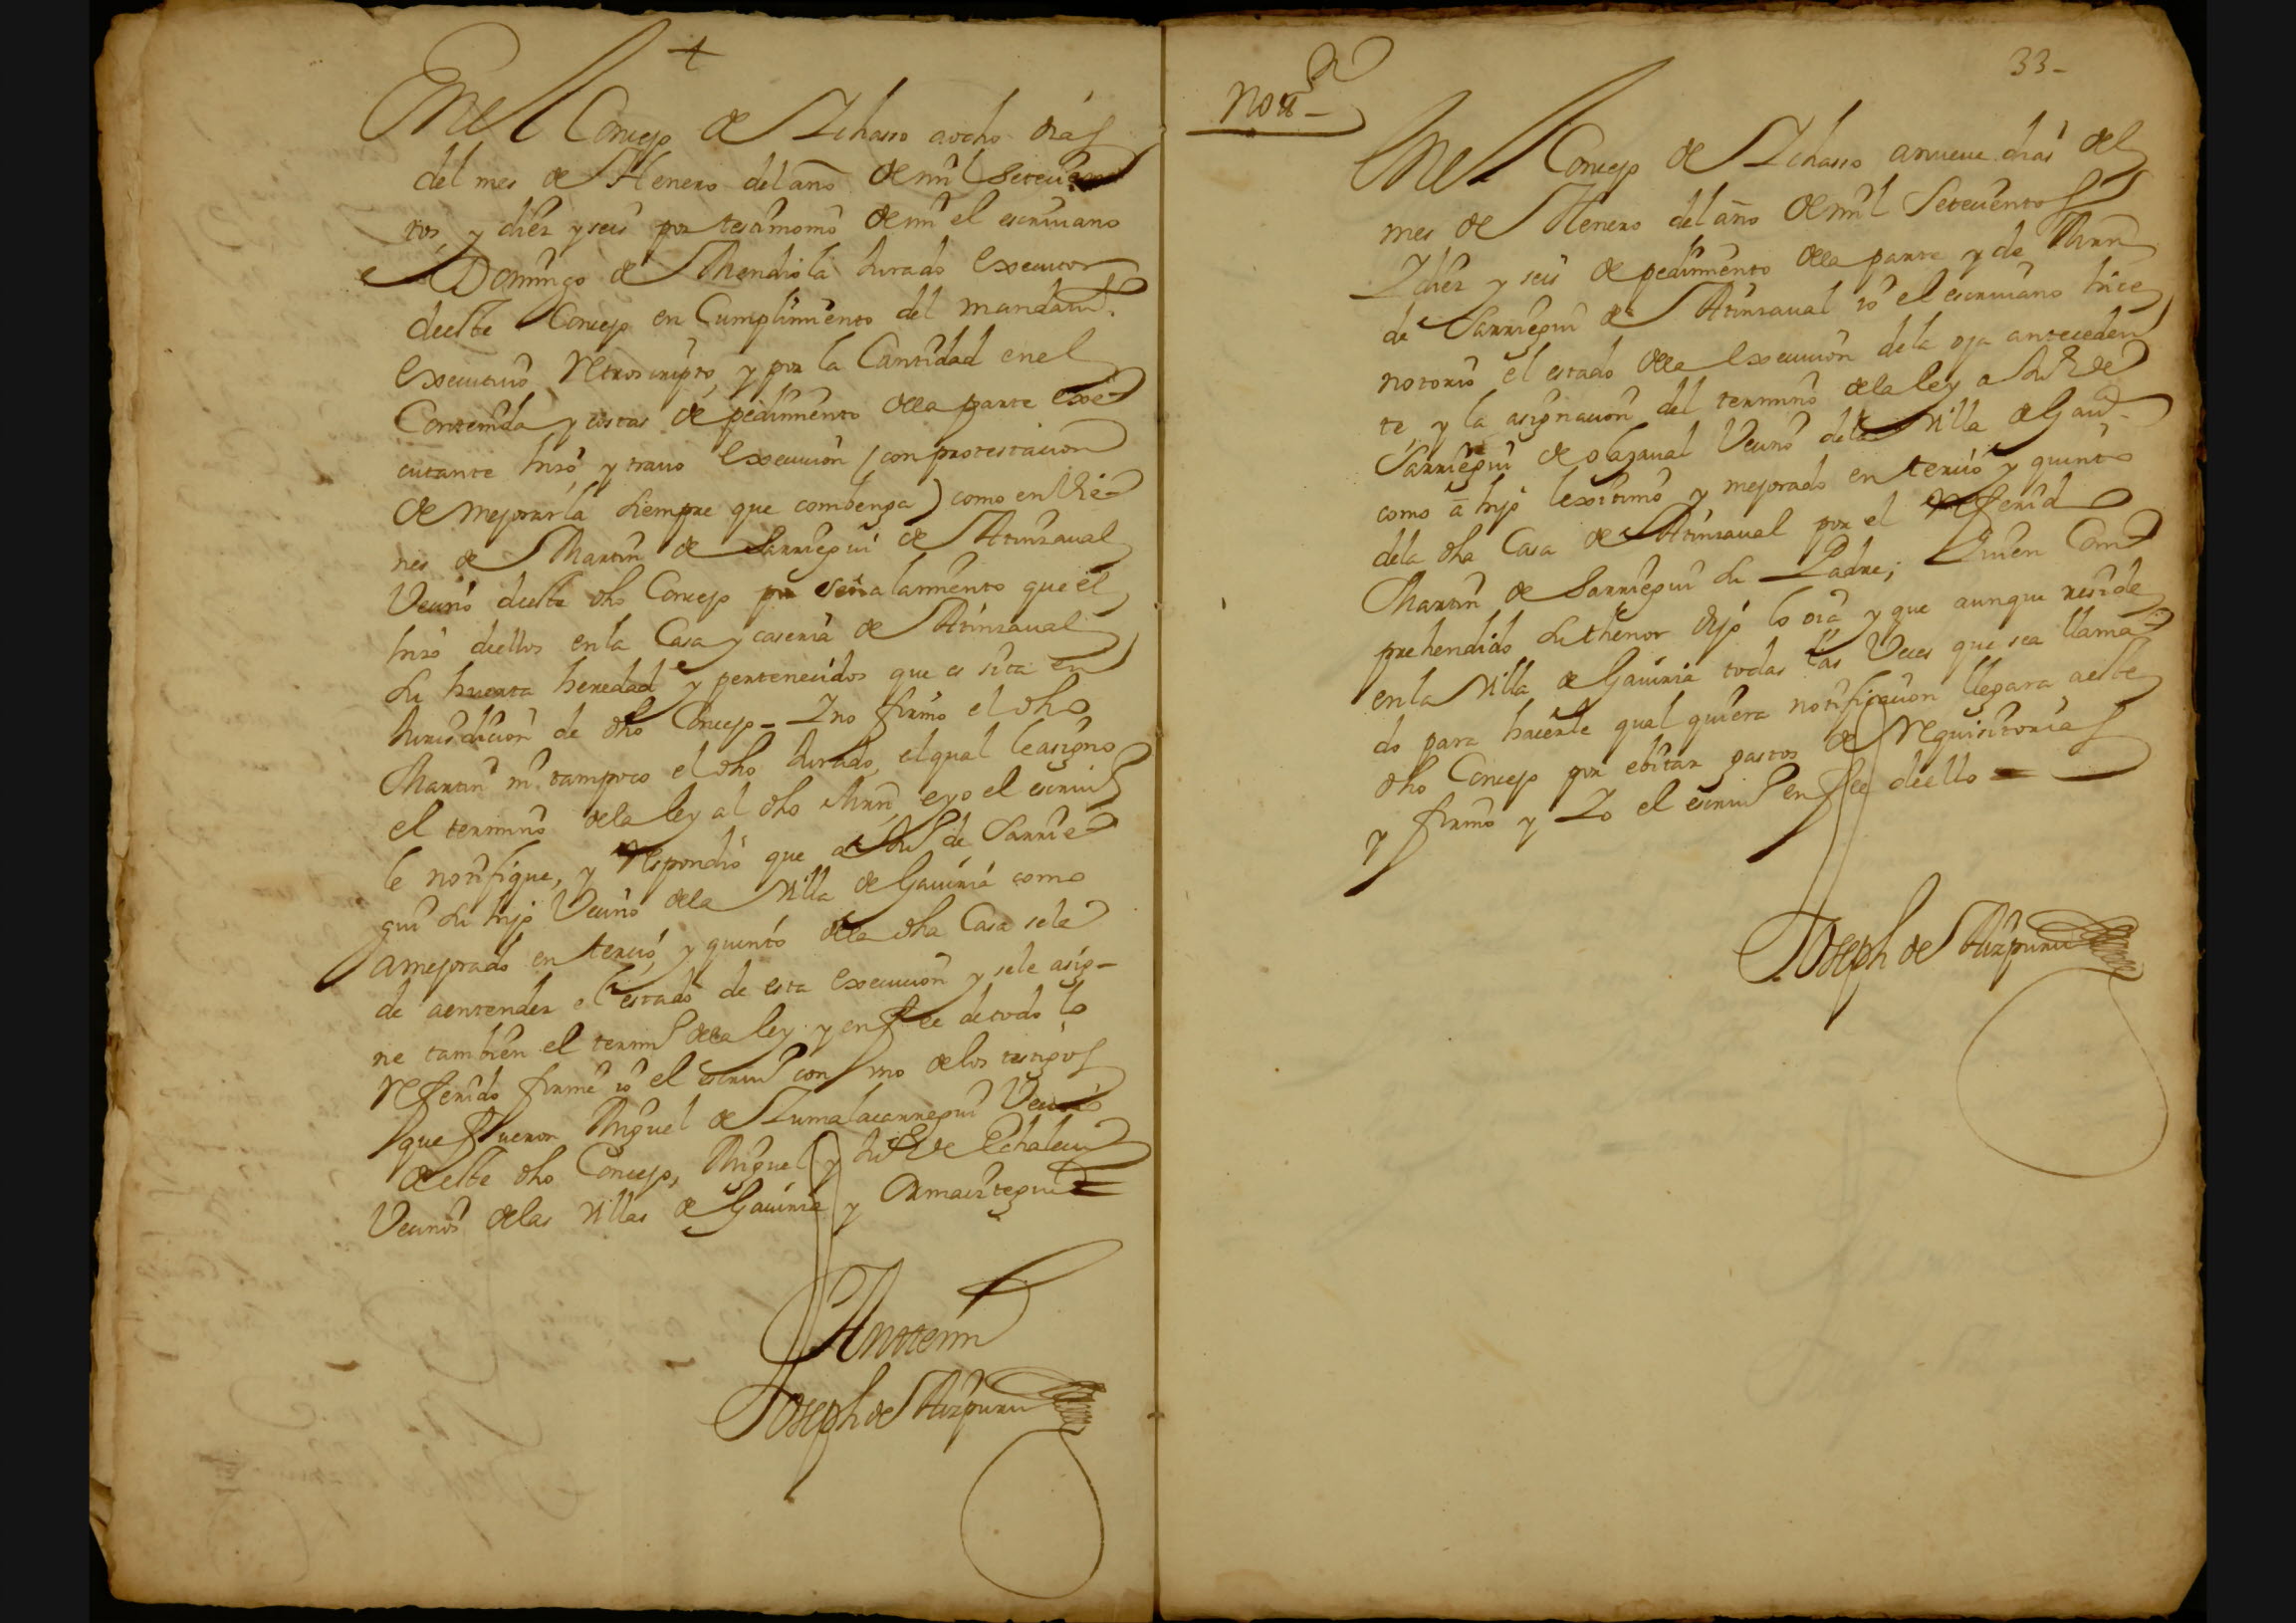 +
En el Concejo de Ichasso a ocho dias
del mes de Henero del año de mil Setecien
tos, y diez y seis por testimonio de mi el escriuano
Domingo de Mendiola Jurado executor
deeste Concejo en Cumplimiento del mandamto.
executiuo Retroscripto, y por la Cantidad en el
Contenida y costas de pedimento de la parte exe-
cutante hizo, y trauo execucion (con protestacion
de mejorarla siempre que combenga) como en Vie-
nes de Martin de Sarriegui de Atinsaual
Vecino deeste dho Concejo por señalamiento que el
hizo deellos en la Casa y caseria de Atinsaual
su huerta heredad y pertenecidos que es sita en
Jurisdicion de dho Concejo - Y no firmo el dho
Martin ni tampoco el dho Jurado, el qual le asigno
el termino de la ley al dho Mrn, e yo el escriuo
le notifique, y Respondio que a Juo de Sarrie-
gui su hijo Vecino de la Villa de Gauiria como
a mejorado en tercio, y quinto de la dha Casa se le
de a entender el estado de esta execucion y se le asig-
ne tambien el termo de la ley y en fee de todo lo
Referido firme yo el escriuo con uno de los testigos
que fueron Miguel de Zumalacarregui Vecino
deeste dho Concejo, Miguel y Juo de Echalecu
Vecinos de las Villas de Gauiria y Ormaiztegui =
Ante mi
Joseph de Aizpuru
33-
Notn -
En el Concejo de Ichasso a nueue dias del
mes de Henero del año de mil Setecientos
Y diez y seis de pedimento de la parte y de Mrn
de Sarriegui de Atinsaual yo el escriuano hice
notorio el estado de la execucion de la oja anteceden
te, y la asignacion del termino de la ley a Juo de
Sarriegui de olazaual Vecino de la Villa de Gaua-
como a hijo lexitimo y mejorado en tercio y quinto
de la dha Casa de Atinsaual por el Referido
Martin de Sarriegui su Padre; Quien Com
prehendido su thenor dijo lo oia y que aunque reside
en la Villa de Gauiria todas las Veces que sea llama-
do para hacerle qual quiera notificacion llegara aeste
dho Concejo por ebitar gastos de Requisitorias
y firmo y Yo el escriuo en fee deello =
Joseph de Aizpuru